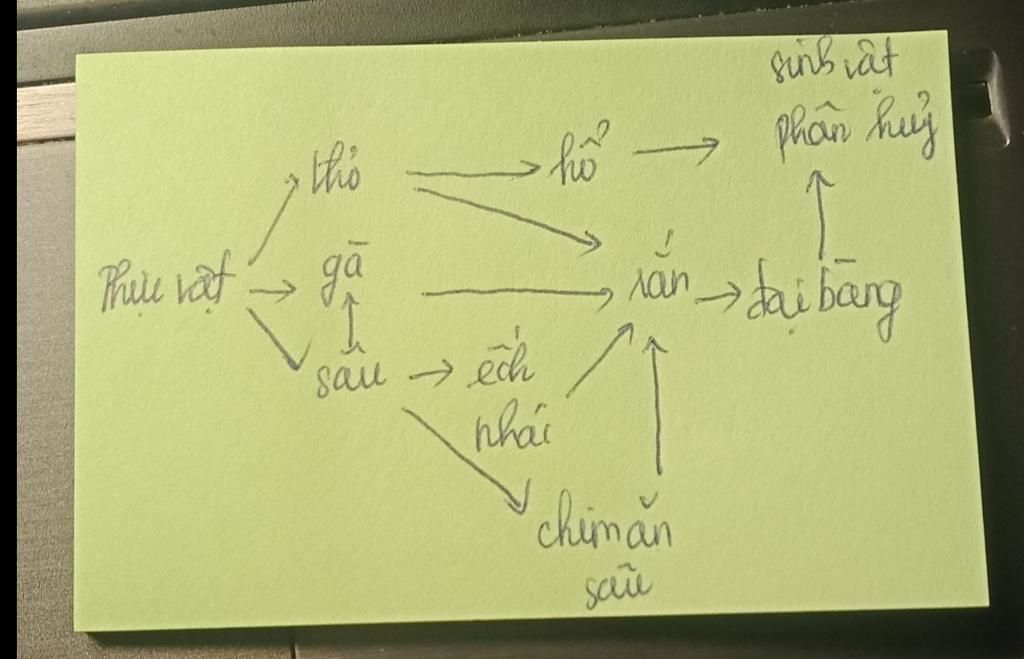 sinh vật
phân huỷ
thỏ
hổ
gà
Thực vật
rắn
đại bàng
sâu
ếch
nhái
chim ăn
sâu